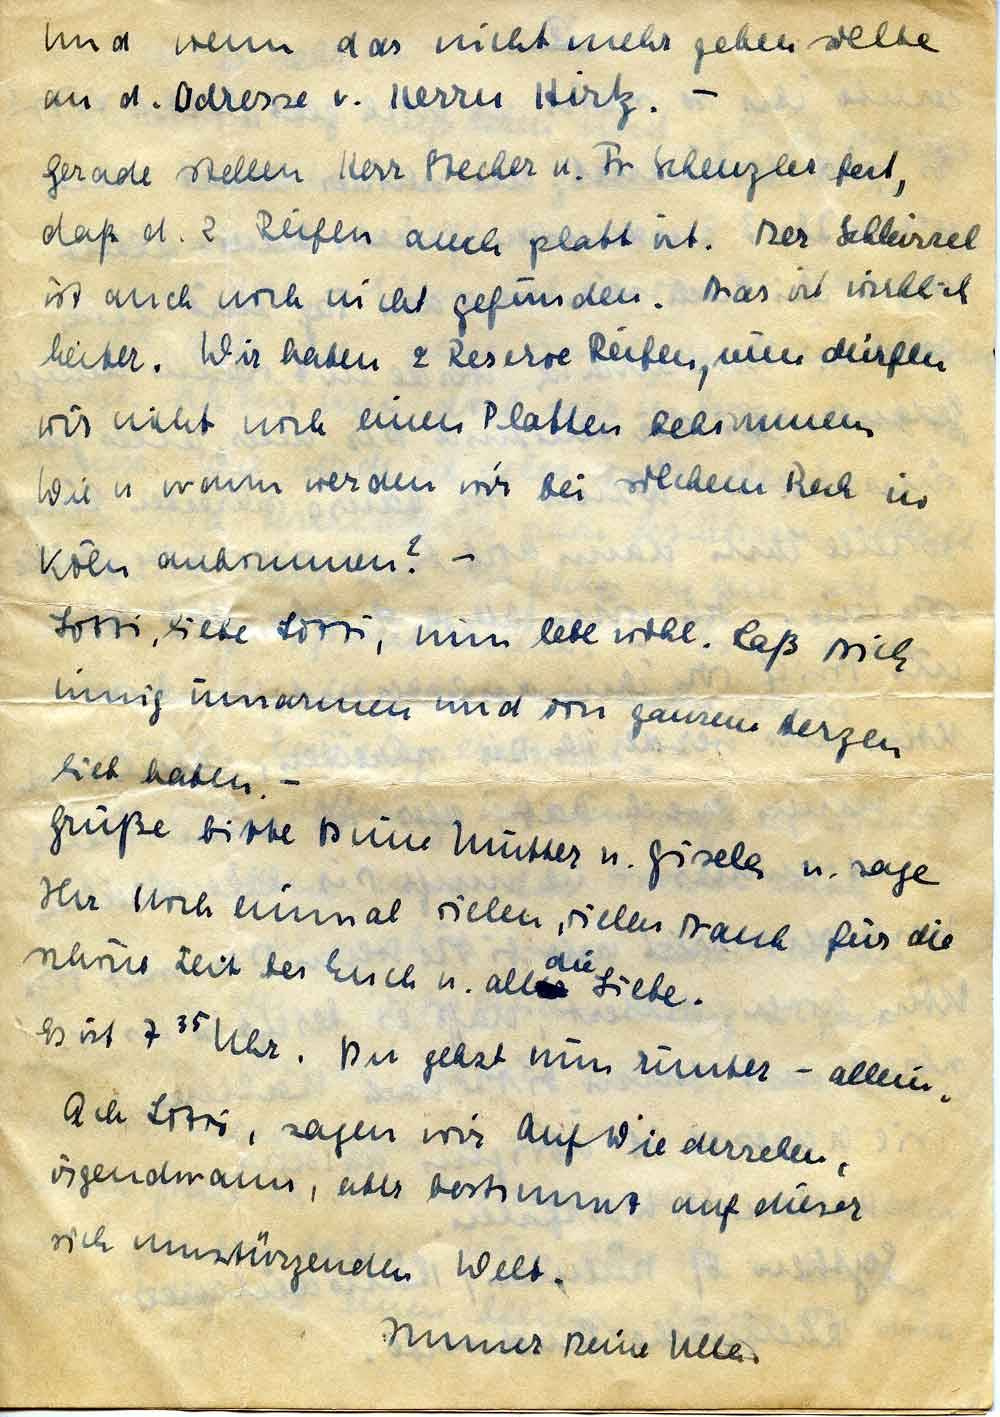 Und wenn das nicht mehr gehen sollte
an d. Adresse v. Herrn Hirtz. –
Gerade stellen Herr Becher u. Fr Schenzler fest,
daß d. 2 Reifen auch platt ist. Der Schlüssel
ist auch noch nicht gefunden. Das ist wirklich
heiter. Wir haben 2 Reserve Reifen, nun dürfen
wir nicht noch einen Platten bekommen
Wie u wann werden wir bei solchem Pech in
Köln ankommen? –
Lotti, liebe Lotti, nun lebe wohl. Laß Dich
innig umarmen und von ganzem Herzen
lieb haben. –
Grüße bitte Deine Mutter u. Gisela u. sage
Ihr noch einmal vielen, vielen Dank für die
schöne Zeit bei Euch u. all die Liebe.
Es ist 7 35 Uhr. Du gehst nun runter – allein.
Ach Lotti, sagen wir Auf Wiedersehen,
irgendwann, aber bestimmt auf dieser
sich umstürzenden Welt.
Immer Deine Ulla.